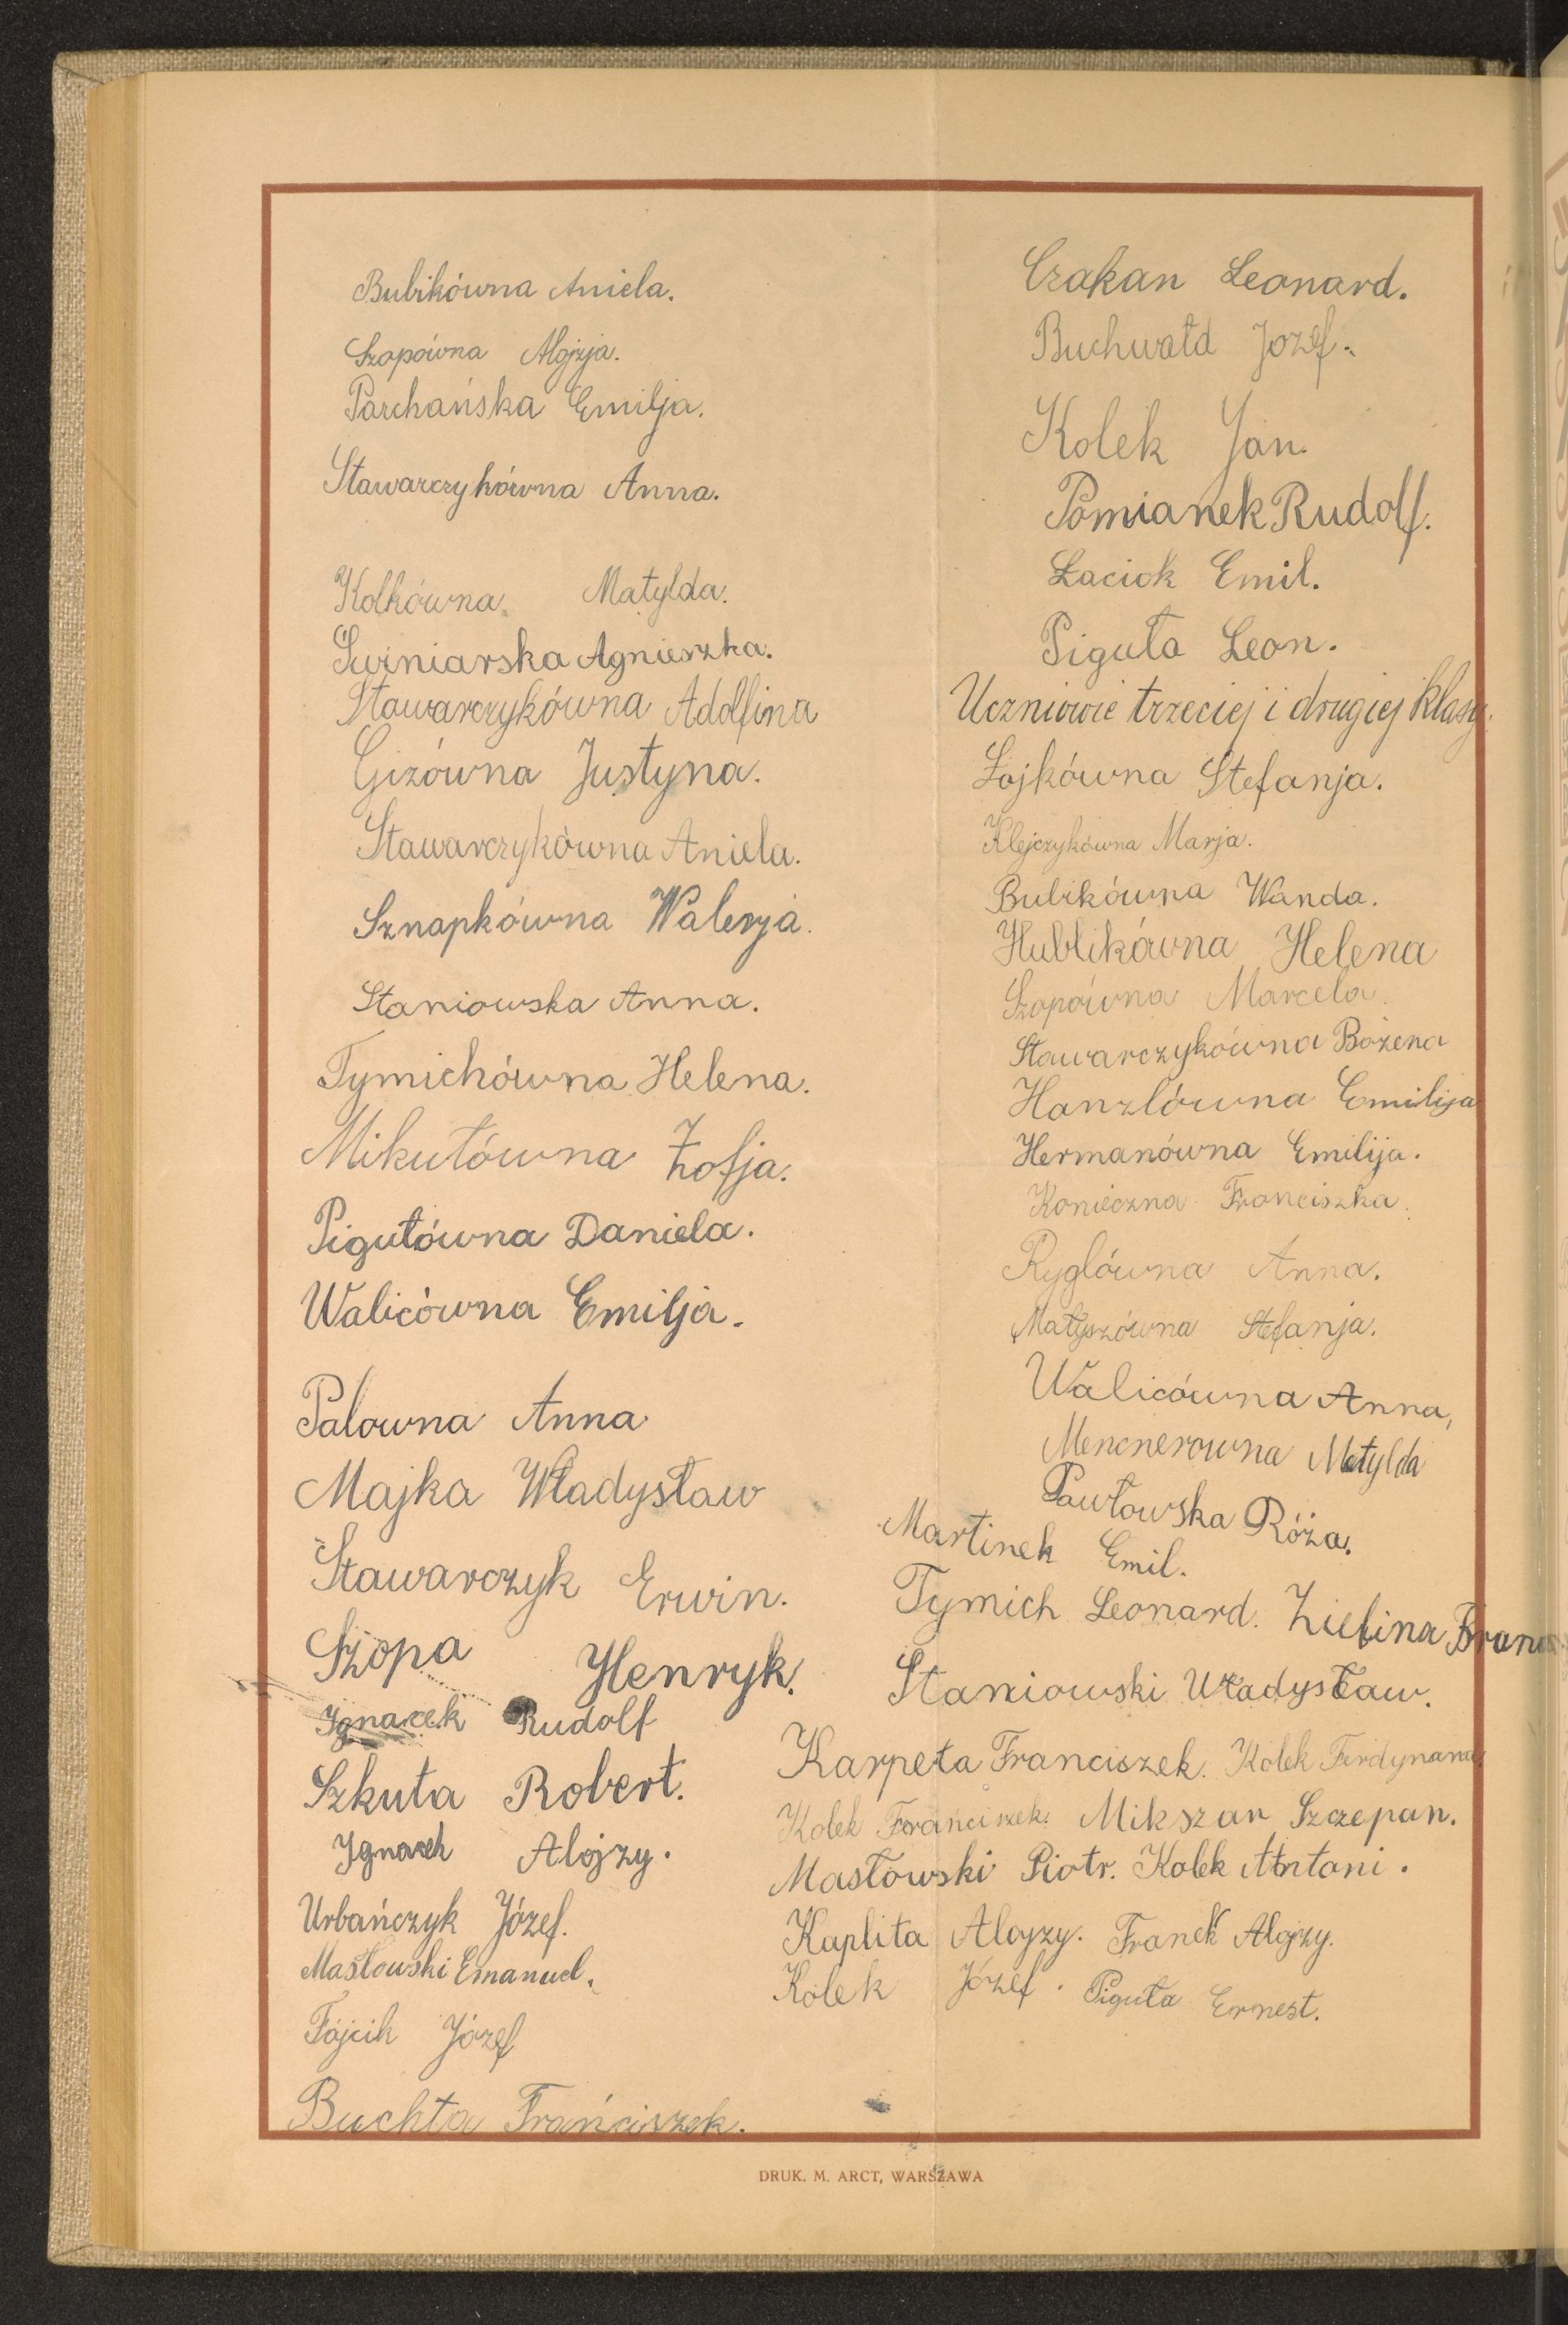 Bubikówna Aniela.
Szopówna Alojzja.
Parchańska Emilja.
Stawarczykówna Anna.
Kolkówna Matylda.
Świniarska Agnieszka.
Stawarczykówna Adolfina
Gizówna Justyna.
Stawarczykówna Aniela.
Sznapkówna Walerja.
Staniowska Anna.
Tymichówna Helena.
Mikułówna Zofja.
Pigułówna Daniela.
Walicówna Emilja.
Palowna Anna
Majka Władysław
Stawarczyk Erwin.
Szopa Henryk.
Ignacek Rudolf
Szkuta Robert.
Ignacek Alojzy.
Urbańczyk Józef.
Masłowski Emanuel.
Fójcik Józef
Buchta Frańciszek.
Czakan Leonard.
Buchwałd Jozef.
Kolek Jan.
Pomianek Rudolf.
Łaciok Emil.
Piguła Leon.
Uczniowie trzeciej i drugiej klasy.
Łojkówna Stefanja.
Klejczykówna Marja.
Bubikówna Wanda.
Hublikówna Helena
Szopówna Marcela.
Stawarczykówna Bożena
Hanzlówna Emilija
Hermanówna Emilija.
Konieczna Franciszka.
Ryglówna Anna.
Matyszówna Stefanja.
Walicówna Anna,
Mencnerowna Matylda
Pawłowska Róża.
Martinek Emil.
Tymich Leonard. Zielina Franc
Staniowski Władysław.
Karpeta Franciszek. Kolek Ferdynand.
Kolek Frańciszek. Mikszan Szczepan.
Masłowski Piotr. Kolek Antoni.
Kaplita Alojzy. Franek Alojzy.
Kolek Józef. Piguła Ernest.
DRUK. M. ARCT, WARSZAWA